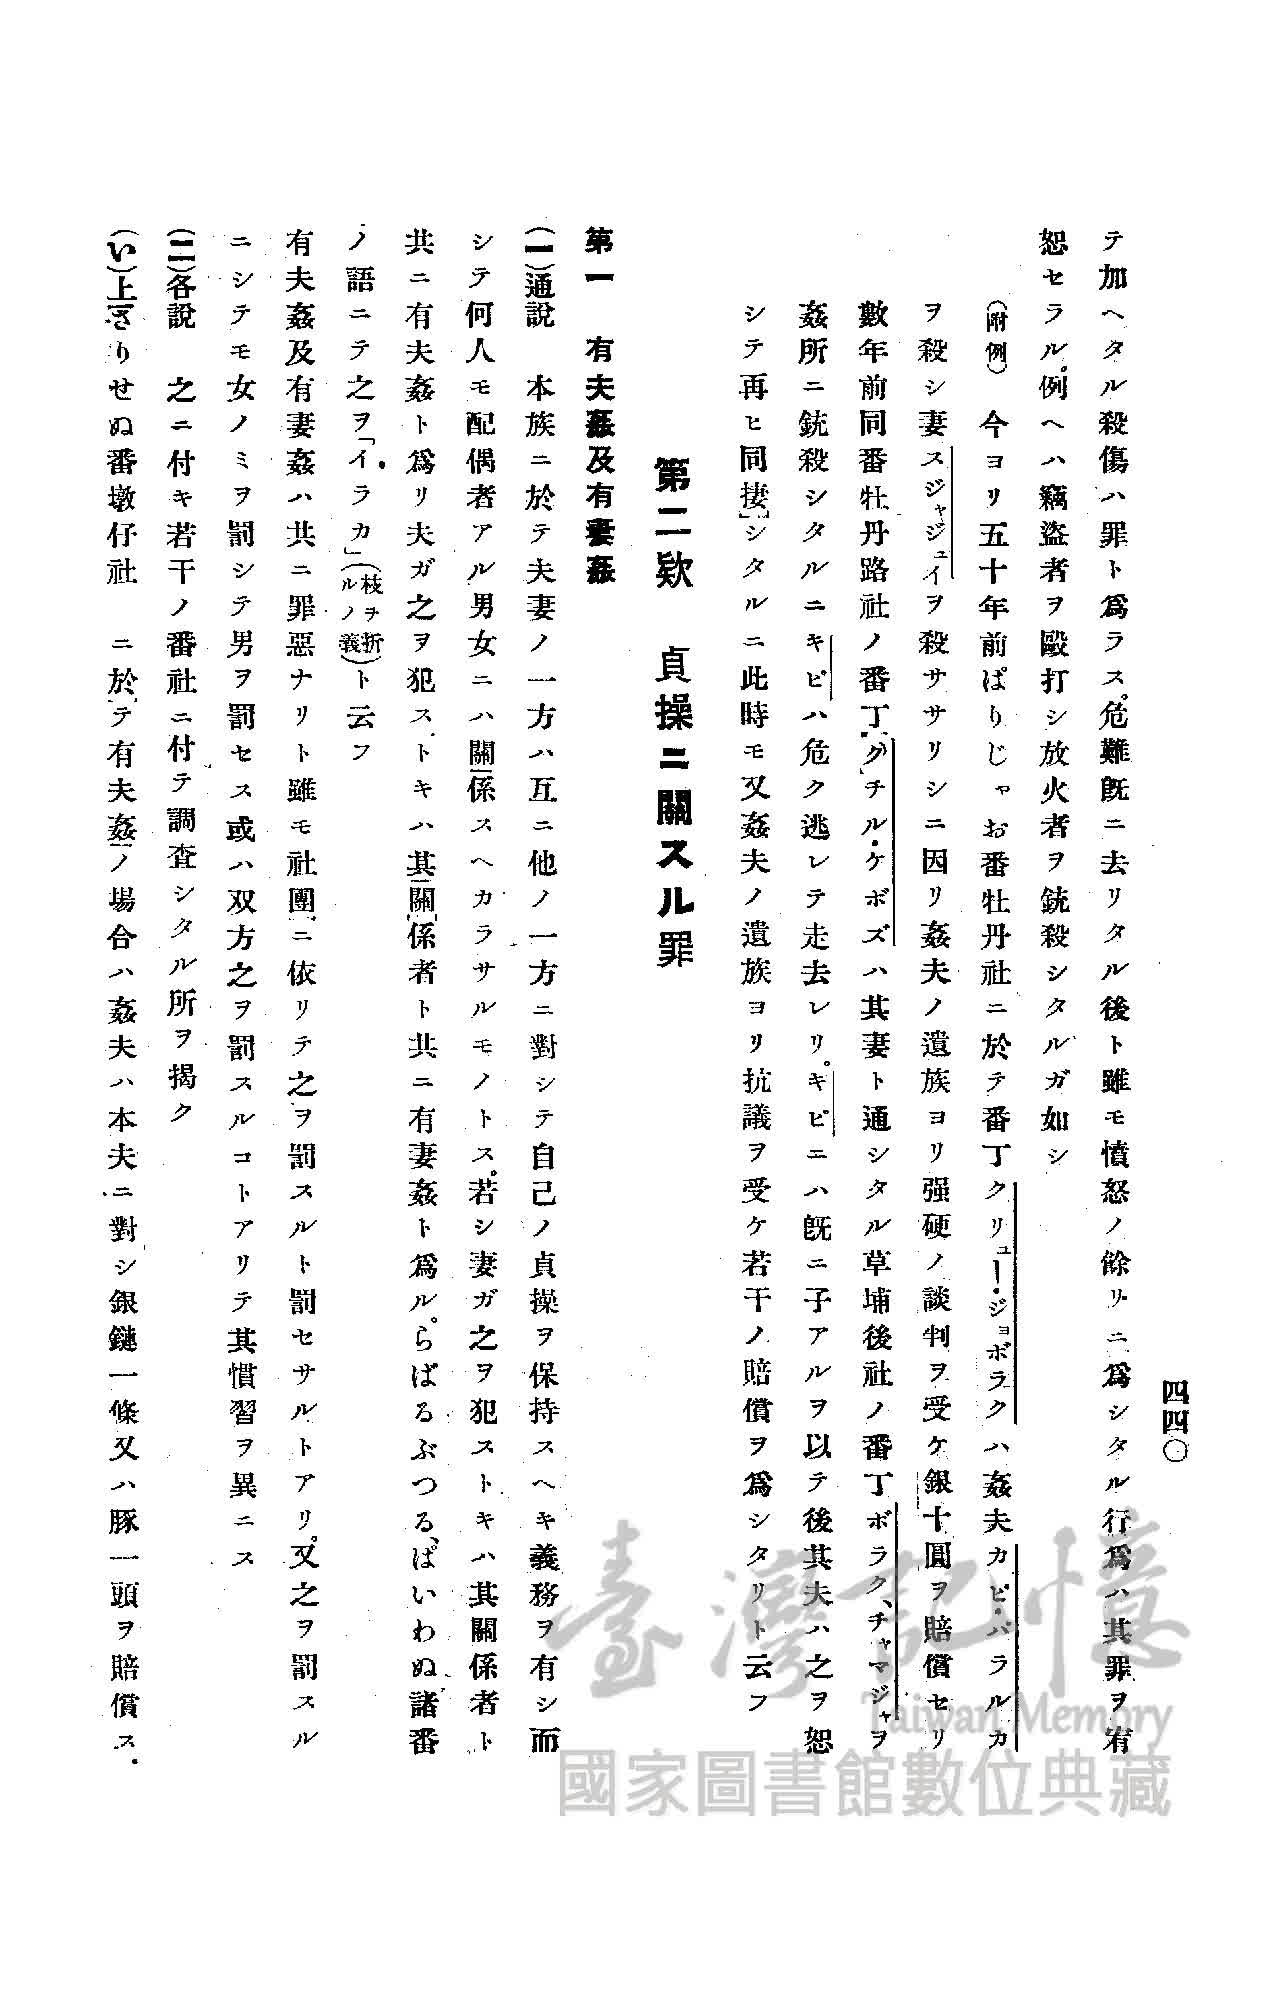 四四〇
テ加ヘタル殺傷ハ罪ト爲ラス。危難既ニ去リタル後ト雖モ憤怒ノ餘リニ爲シタル行爲ハ其罪ヲ宥
恕セラル。例ヘハ竊盜者ヲ毆打シ放火者ヲ銃殺シタルガ如シ
(附例) 今ヨリ五十年前ぱりじゃお番牡丹社ニ於テ番丁クリュー・ジョボラクハ姦夫カピ・パラルカ
ヲ殺シ妻スジャジュイヲ殺ササリシニ因リ姦夫ノ遺族ヨリ强硬ノ談判ヲ受ケ銀十圓ヲ賠償セリ
數年前同番牡丹路社ノ番丁クチル・ケボズハ其妻ト通シタル草埔後社ノ番丁ボラク、チャマジャヲ
姦所ニ銃殺シタルニキピハ危ク逃レテ走去レリ。キピニハ既ニ子アルヲ以テ後其夫ハ之ヲ恕
シテ再ヒ同捿シタルニ此時モ又姦夫ノ遺族ヨリ抗議ヲ受ケ若干ノ賠償ヲ爲シタリト云フ
第二欵 貞操ニ關スル罪
第一 有夫姦及有妻姦
(一)通說 本族ニ於テ夫妻ノ一方ハ互ニ他ノ一方ニ對シテ自己ノ貞操ヲ保持スヘキ義務ヲ有シ而
シテ何人モ配偶者アル男女ニハ關係スヘカラサルモノトス。若シ妻ガ之ヲ犯ストキハ其關係者ト
共ニ有夫姦ト爲リ夫ガ之ヲ犯ストキハ其關係者ト共ニ有妻姦ト爲ル。らばるぶつる、ぱいわぬ諸番
ノ語ニテ之ヲ「イラカ」(枝ヲ折ルノ義)ト云フ
有夫姦及有妻姦ハ共ニ罪惡ナリト雖モ社團ニ依リテ之ヲ罰スルト罰セサルトアリ。又之ヲ罰スル
ニシテモ女ノミヲ罰シテ男ヲ罰セス或ハ双方之ヲ罰スルコトアリテ其慣習ヲ異ニス
(二)各說 之ニ付キ若干ノ番社ニ付テ調査シタル所ヲ揭ク
(い)上ざりせぬ番墩仔社 ニ於テ有夫姦ノ場合ハ姦夫ハ本夫ニ對シ銀鏈一條又ハ豚一頭ヲ賠償ス.
臺灣記憶
Taiwan Memory
國家圖書館數位典藏